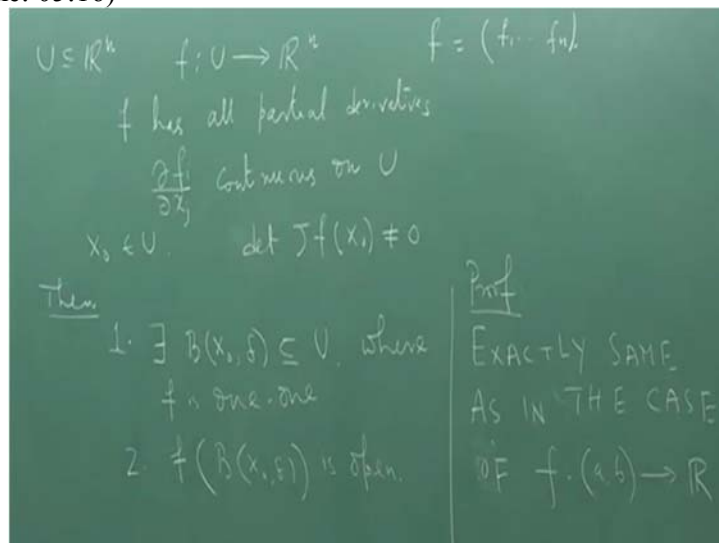 U ⊆ ℝⁿ f : U → ℝⁿ f = (f₁ ... fₙ).
f has all partial derivatives
∂fᵢ/∂xⱼ continuous on U
x₀ ∈ U. det Jf(x₀) ≠ 0
Then
1. ∃ B(x₀, δ) ⊆ U. where
f is one-one
2. f(B(x₀, δ)) is open.
Proof
EXACTLY SAME
AS IN THE CASE
OF f : (a, b) → ℝ